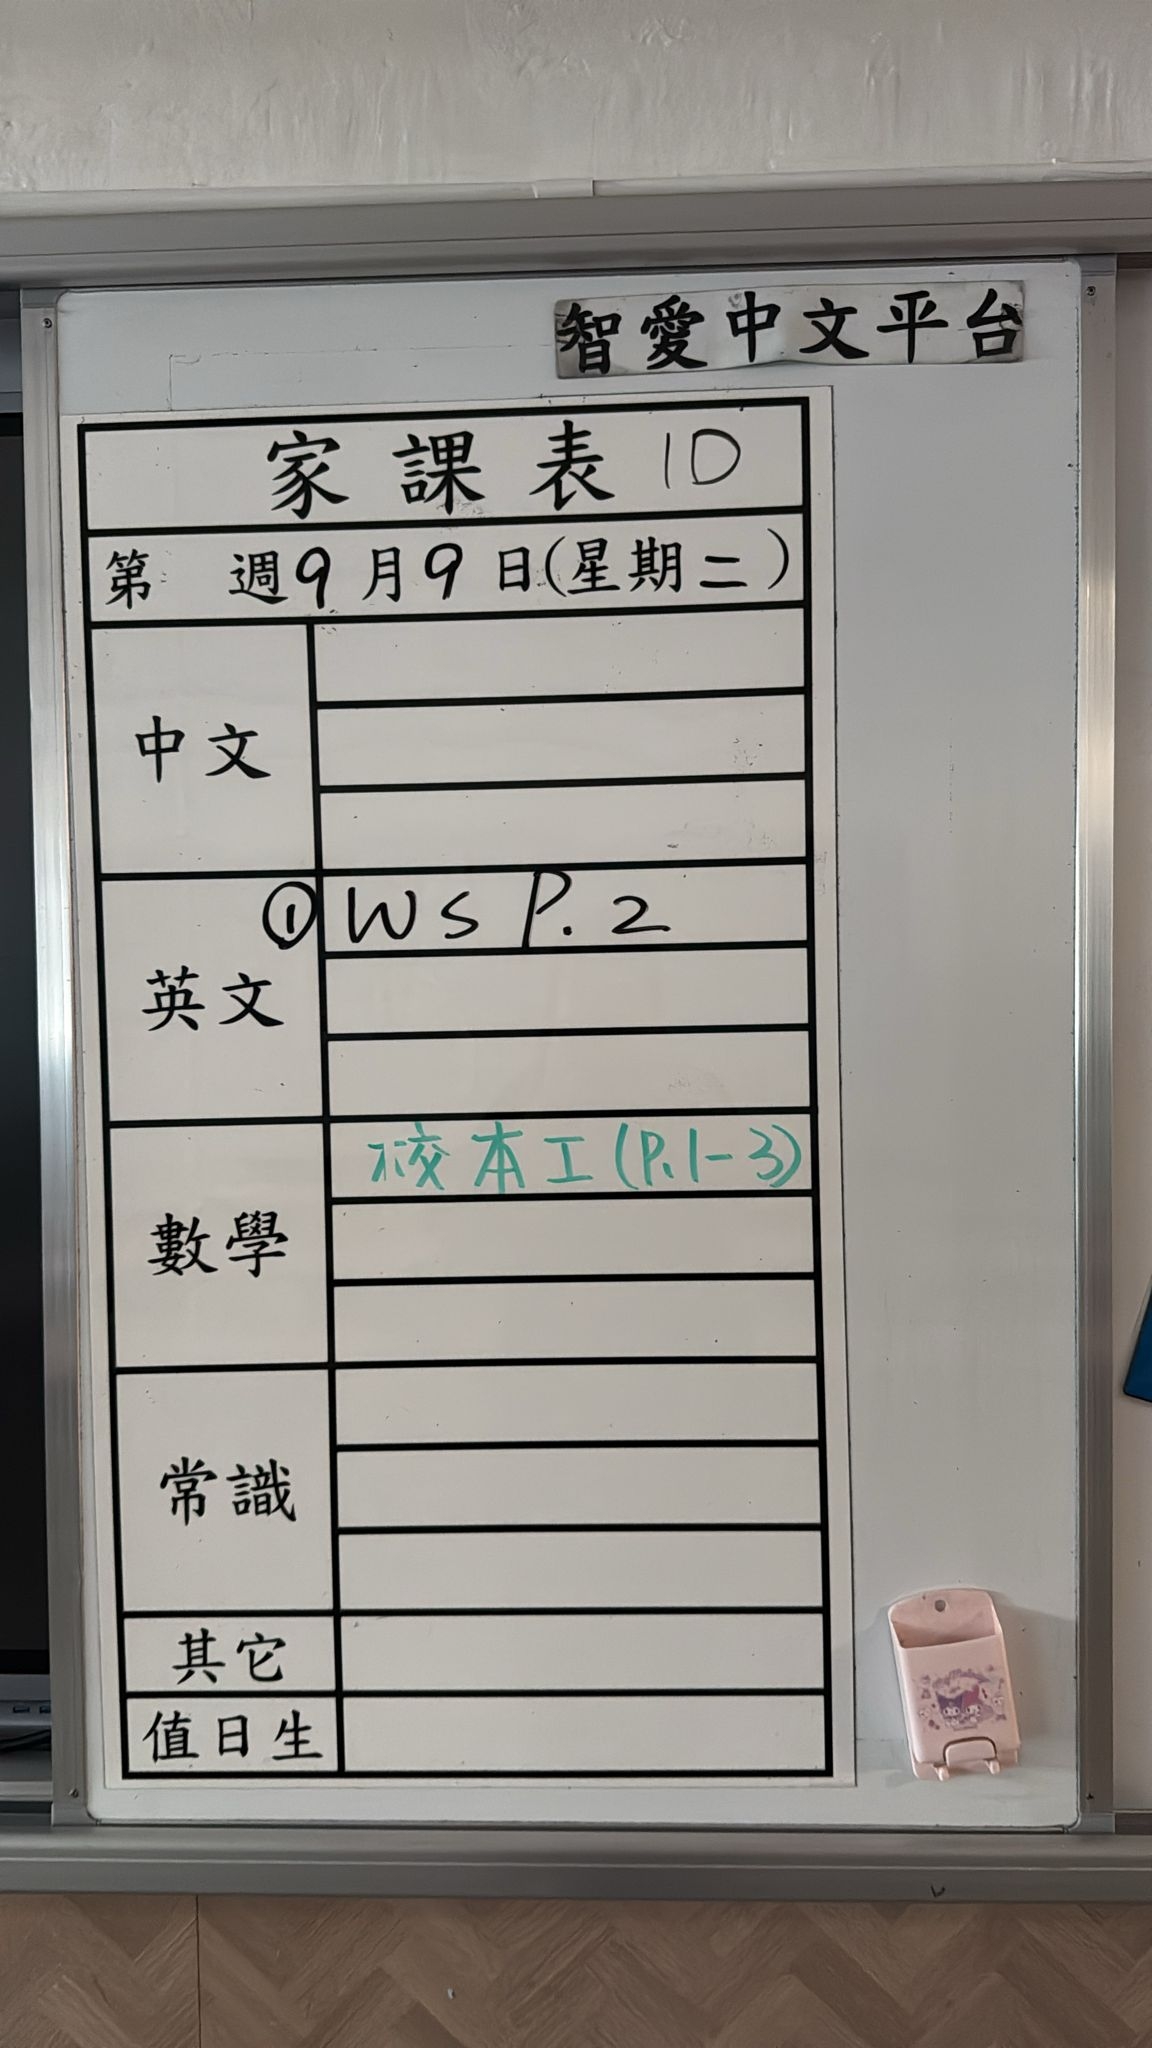 智愛中文平台
家課表 1D
第 週9月9日(星期二)
中文
① WS P.2
英文
校本工(P.1-3)
數學
常識
其它
值日生